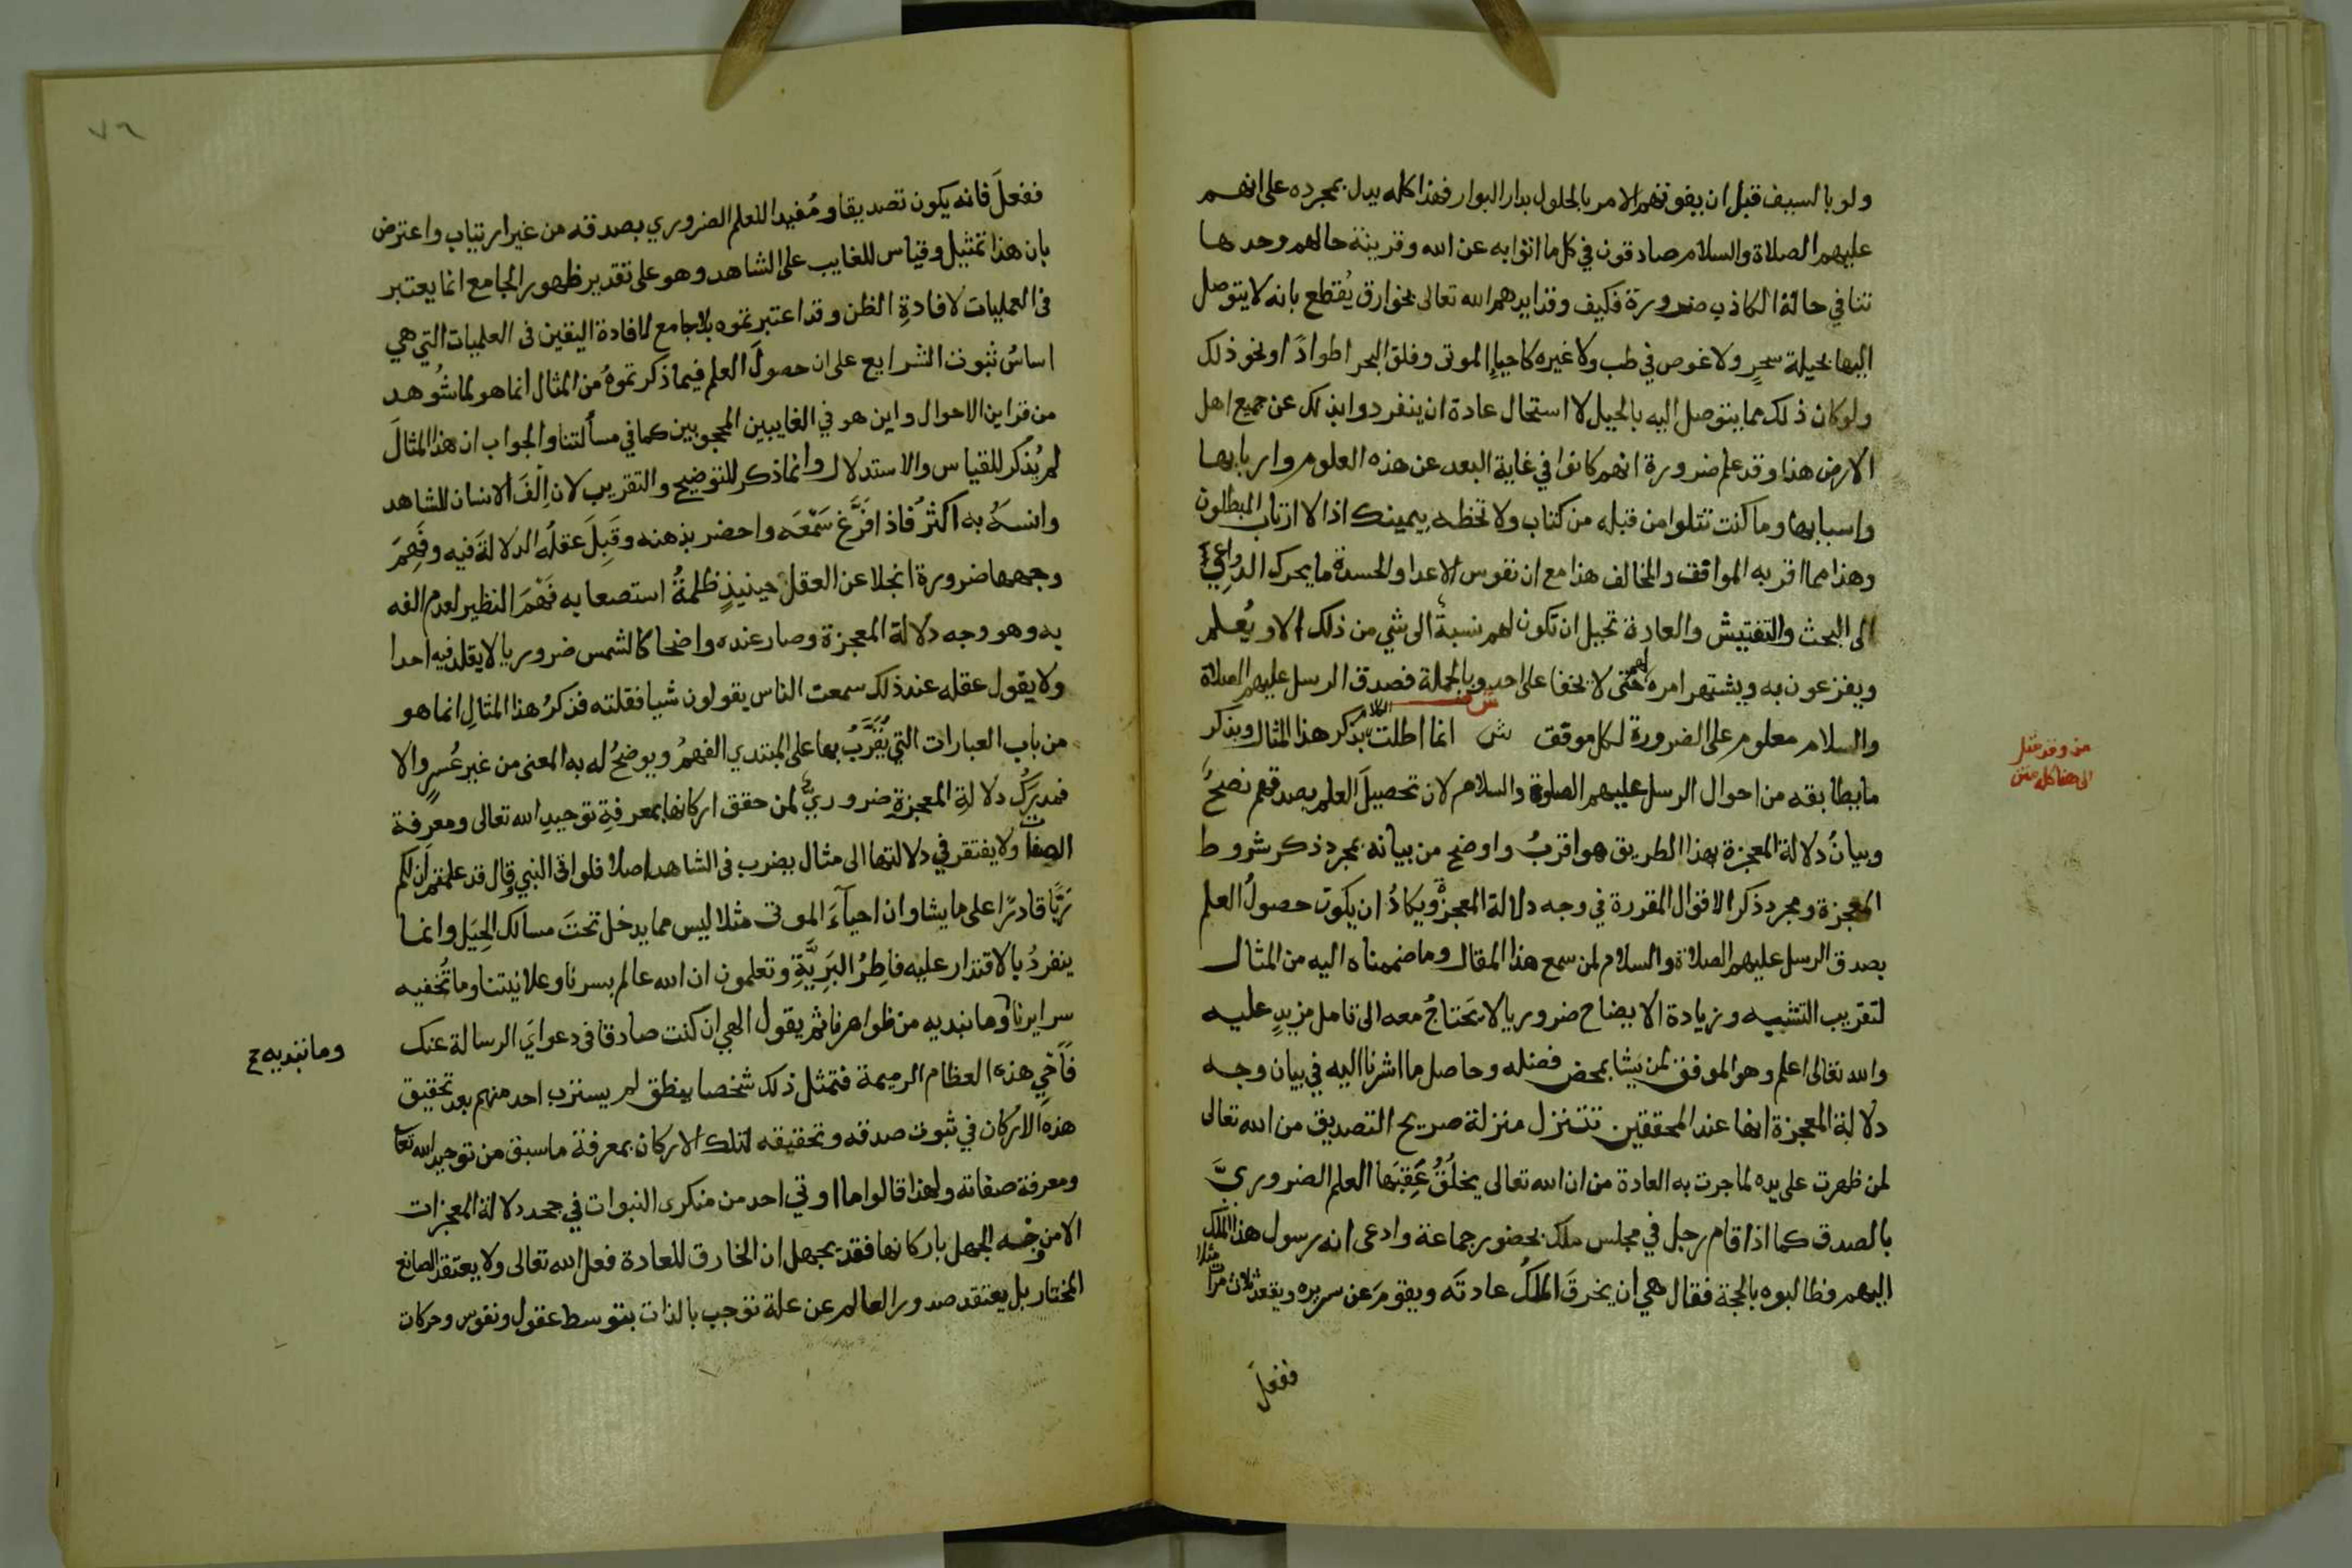 ولو بالسيف قبل ان يفوتهم الامر بالحلول بدار البوار فهذا كله يدل بمجرده على انهم
عليهم الصلاة والسلام صادقون في كل ما اتوا به عن الله وقرينة حالهم وحدها
تنافي حالة الكاذب ضرورة فكيف وقد ايدهم الله تعالى بخوارق يُقطع بانه لا يتوصل
اليها بحيلة سحرٍ ولا غوص في طب ولا غيره كاحياءِ الموتى وفلق البحر اطوادًا ونحو ذلك
ولو كان ذلك مما يتوصل اليه بالحيل لا استحال عادة ان ينفردوا بذلك عن جميع اهل
الارض هذا وقد علم ضرورة انهم كانوا في غاية البعد عن هذه العلوم واربابها
واسبابها وما كنت تتلوا من قبله من كتاب ولا تخطه بيمينك اذا لا ارتاب المبطلون
وهذا مما اقر به الموافق والمخالف هذا مع ان نفوس الاعدا والحسدة ما يحرك الدواعي
الى البحث والتفتيش والعادة تحيل ان تكون لهم نسبة الى شي من ذلك الا ويُعلم
ويفزعون به ويشتهر امرهم حتى لا يخفا على احد وبالجملة فصدق الرسل عليهم الصلاة
والسلام معلوم على الضرورة لكل موفق ش انما اطلت بذكر هذا المثال وبذكر
من وقد مثل
الى هنا كله متن
ما يطابقه من احوال الرسل عليهم الصلوة والسلام لان تحصيلَ العلم بصدقهم نصحٌ
وبيانُ دلالة المعجزة بهذا الطريق هو اقربُ واوضح من بيانه بمجرد ذكر شروط
المعجزة ومجرد ذكر الاقوال المقررة في وجه دلالة المعجزة ويكادُ ان يكون حصولُ العلم
بصدق الرسل عليهم الصلاة والسلام لمن سمع هذا المقال وما ضممناه اليه من المثال
لتقريب التشبيه وزيادة الايضاح ضروريا لا يَحتاجُ معه الى تامل مزيدٍ عليه
والله تعالى اعلم وهو الموفق لمن يشا بمحض فضله وحاصل ما اشرنا اليه في بيان وجه
دلالة المعجزة انها عند المحققين تتنزل منزلة صريح التصديق من الله تعالى
لمن ظهرت على يده لما جرت به العادة من ان الله تعالى يخلُقُ عَقِبَها العلم الضروريَّ
بالصدق كما اذا قام رجل في مجلس ملك بحضور جماعة وادعى انه رسول هذا الملك
اليهم فطالبوه بالحجة فقال هي ان يخرقَ الملكُ عادتَه ويقومَ عن سريره ويقعد ثلاث مرات مثلا
ففعلَ
٧٦
ففعلَ فانه يكون تصديقا ومُفيدا للعلم الضروري بصدقه من غير ارتياب واعترض
بان هذا تمثيل وقياس للغايب على الشاهد وهو على تقدير ظهور الجامع انما يعتبر
في العمليات لافادةِ الظن وقد اعتبرتموه بلا جامع لافادة اليقين في العلميات التي هي
اساسُ ثبوت الشرايع على ان حصولَ العلم فيما ذكرتموهُ من المثال انما هو لما شُوهد
من قراين الاحوال واين هو في الغايبين المحجوبين كما في مسألتنا والجواب ان هذا المثالَ
لم يُذكر للقياس والاستدلال وانما ذكر للتوضيح والتقريب لان اِلفَ الانسان للشاهد
وانسَهُ به اكثرُ فاذا فرَّغ سَمْعَه واحضر بذهنه وقَبِلَ عقلُه الدلالةَ فيه وفَهِمَ
وجهها ضرورة انجلا عن العقل حينيذٍ ظلمةُ استصعابه فَهْمَ النظير لعدم الفه
به وهو وجه دلالة المعجزة وصار عنده واضحا كالشمس ضروريا لا يقلد فيه احدا
ولا يقول عقله عند ذلك سمعت الناس يقولون شيا فقلته فذكرُ هذا المثالِ انما هو
من باب العبارات التي يُقَرَّبُ بها على المبتدي الفهمُ ويوضحُ له به المعنى من غير عُسرٍ والا
فمدركُ دلالةِ المعجزةِ ضروريٌّ لمن حقق اركانها بمعرفةِ توحيدِ الله تعالى ومعرفة
الصفات ولا يفتقر في دلالتها الى مثال يضرب في الشاهد اصلا فلو اتى النبي وقال قد علمتم ان لكم
ربًّا قادرًا على ما يشا وان احيآءَ الموتى مثلا ليس مما يدخل تحتَ مسالك الحِيَل وانما
ينفردُ بالاقتدار عليه فاطِرُ البَرِيَّةِ وتعلمون ان الله عالم بسرنا وعلانيتنا وما تُخفيه
سرايرنا وما نبديه من ظواهرنا ثم يقول الهي ان كنت صادقا في دعوايَ الرسالة عنك
وما نبديه ح
فأحْيِ هذه العظام الرميمة فتمثل ذلك شخصا ينطق لم يسترب احد منهم بعد تحقيق
هذه الاركان في ثبوت صدقه وتحقيقه لتلك الاركان بمعرفة ما سبق من توحيد الله تعالى
ومعرفة صفاته ولهذا قالوا ما اوتي احد من منكرى النبوات في جحد دلالة المعجزات
الا من وجه الجهل باركانها فقد يجهل ان الخارق للعادة فعل الله تعالى ولا يعتقد الصانع
المختار بل يعتقد صدور العالم عن علة توجب بالذات بتوسط عقول ونفوس وحركات